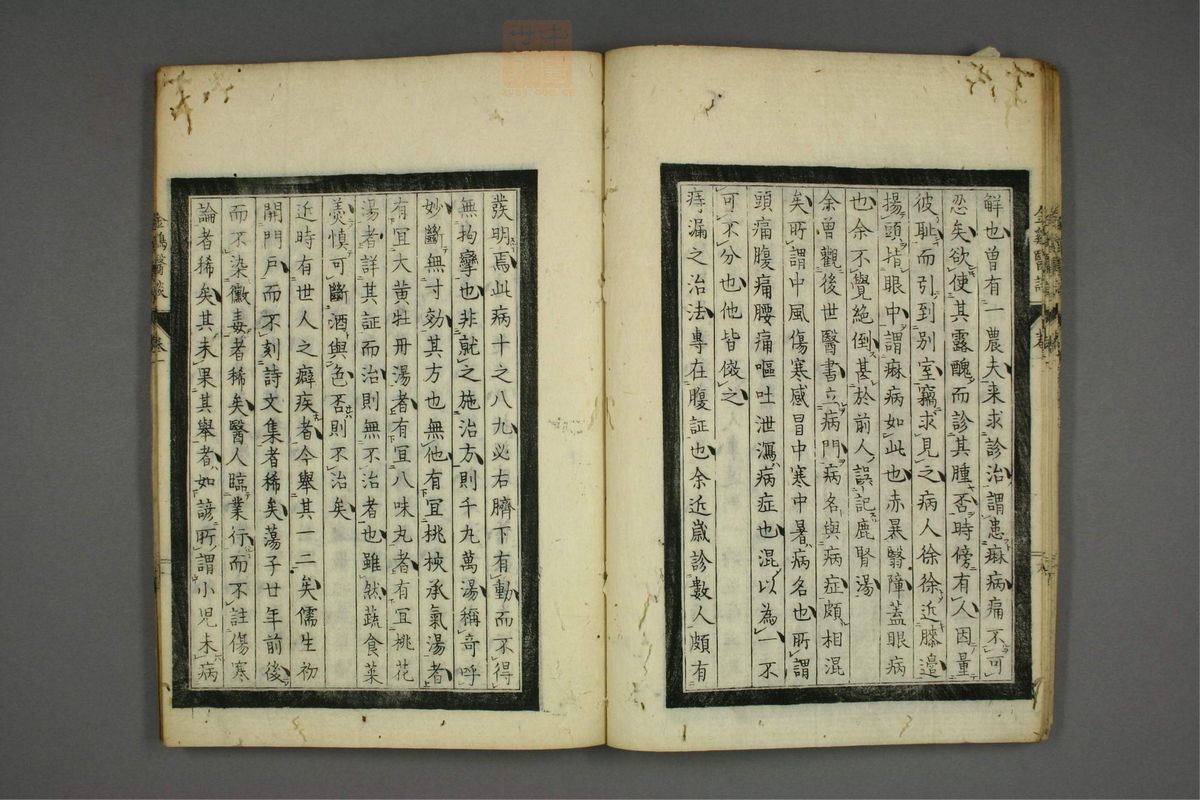 鮮也曽有一農夫来求診治謂患痳病痛不可
忍矣欲使其露醜而診其腫否時傍有人因量
彼耻而引到別室竊求見之病人徐徐近膝邊
揚頭指眼中謂痳病如此也赤暴翳障蓋眼病
也余不覺絶倒甚於前人誤記鹿腎湯
余曽觀後世醫書立病門病名與病症頗相混
矣所謂中風傷寒感冒中寒中暑病名也所謂
頭痛腹痛腰痛嘔吐泄瀉病症也混以為一不
可不分也他皆倣之
痔漏之治法專在腹証也余近歲診數人頗有
發明焉此病十之八九必右臍下有動而不得
無拘攣也非就之施治方則千九萬湯稱奇呼
妙斷無寸効其方也無他有宜桃核承氣湯者
有宜大黄牡丹湯者有宜八味丸者有宜桃花
湯者詳其証而治則無不治者也雖然蔬食菜
羹慎可斷酒與色否則不治矣
近時有世人之癖疾者今舉其一二矣儒生初
開門戶而不刻詩文集者稀矣蕩子廿年前後
而不染黴毒者稀矣醫人臨業行而不註傷寒
論者稀矣其未果其舉者如諺所謂小児未病